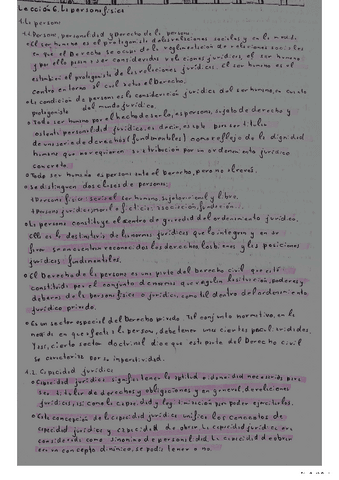 Lección 6. La persona física
1. La persona
1.1. Persona, personalidad y Derecho de la persona.
El ser humano es el protagonista de las relaciones sociales y en la medida
en que el Derecho se ocupa de la reglamentación de relaciones sociales
y por ello pasan a ser consideradas relaciones jurídicas, el ser humano
establecer el protagonista de las relaciones jurídicas. El ser humano es el
centro en torno al cual rota el Derecho.
La condición de persona es la consideración jurídica del ser humano, en cuanto
protagonista del mundo jurídico.
Todo ser humano por el hecho de serlo, es persona, sujeto de derecho y
ostenta personalidad jurídica, es decir, es apto para ser titular
de una serie de derechos (fundamentales) como reflejo de la dignidad
humana que no requieren su atribución por un ordenamiento jurídico
concreto.
Todo ser humano es persona ante el Derecho, pero no al revés.
Se distinguen dos clases de persona:
Persona física: sería el ser humano, sujeto racional y libre.
Persona jurídica, moral o ficticia: asociación, fundación...
La persona constituye el centro de gravedad del ordenamiento jurídico.
Ella es la destinataria de las normas jurídicas que lo integran y en su
favor se encuentran reconocidos los derechos lesbians y las posiciones
jurídicas fundamentales.
El Derecho de la persona es una parte del Derecho civil que está
constituida por el conjunto de normas que regulan la situación, poderes y
deberes de la persona física o jurídica, como tal dentro del ordenamiento
jurídico privado.
Es un sector especial del Derecho privado. Tal conjunto normativo, en la
medida en que afecta a la persona, debe tener unas ciertas peculiaridades.
Así, cierto sector doctrinal dice que esta parte del Derecho civil
se caracteriza por su imperatividad.
1.2. Capacidad jurídica
Capacidad jurídica significa tener la aptitud o idoneidad necesaria para
ser titular de derechos y obligaciones y en general, de relaciones
jurídicas, así como la capacidad y legitimación para poder ejercitarlos.
Esta concepción de la capacidad jurídica unifica los conceptos de
capacidad jurídica y capacidad de obrar. La capacidad jurídica era
considerada como sinónimo de personalidad. La capacidad de obrar
era un concepto dinámico, se podía tener o no.